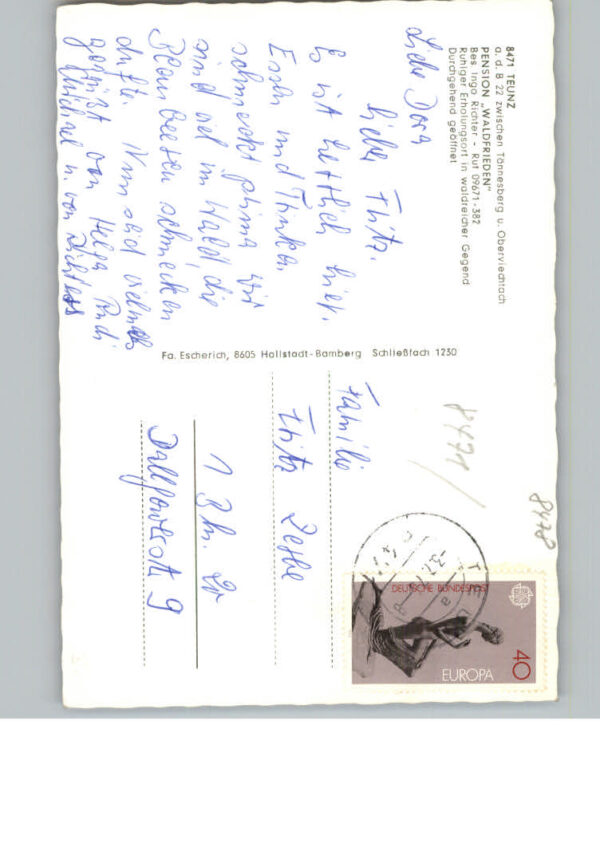 8471 TEUNZ
a. d. B 22 zwischen Tännesberg u. Oberviechtach
PENSION „WALDFRIEDEN"
Bes. Inga Richter - Ruf 09671-382
Ruhiger Erholungsort in waldreicher Gegend
Durchgehend geöffnet
Liebe Dora
lieber Fritz.
Es ist herrlich hier.
Essen und Trinken
schmeckt prima wir
sind viel im Wald, die
Blaubeeren schmecken
dufte. Nun seid vielmals
gegrüßt von Helga Rudi
Michael u. von Richters
Fa. Escherich, 8605 Hallstadt-Bamberg Schließfach 1230
Familie
Fritz
1 Bln. 20
9
8471
8478
DEUTSCHE BUNDESPOST
EUROPA
40